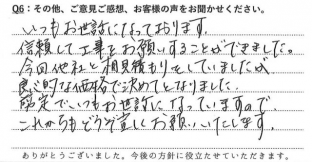 Q6：その他、ご意見ご感想、お客様の声をお聞かせください。
いつもお世話になっております。
信頼して工事をお願いすることができました。
今回他社と相見積もりをしていましたが
良心的な価格で決めてとなりました。
剪定でいつもお世話になっていますので
これからもどうぞ宜しくお願いいたします。
ありがとうございました。今後の方針に役立たせていただきます。